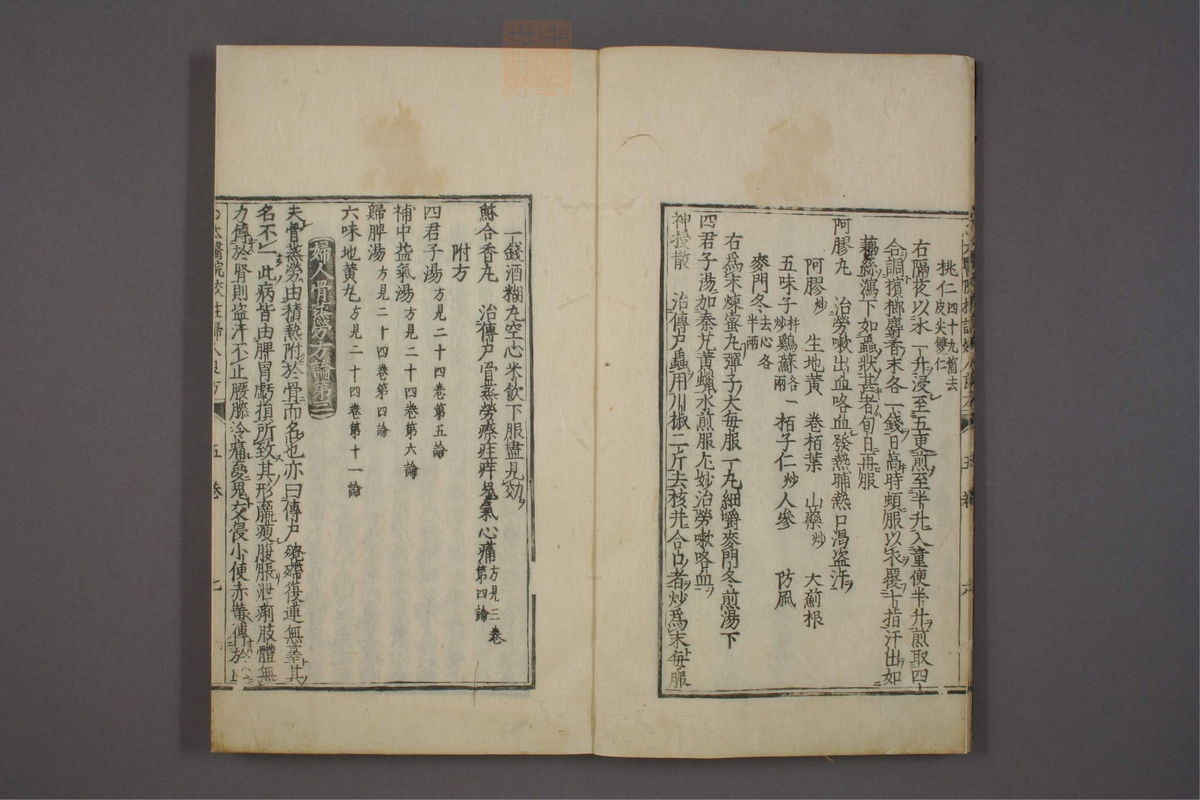 桃仁四十九箇去
皮尖雙仁
右隔夜以水一升浸至五更煎至半升入童便半升煎取四
合調檳榔麝香末各一錢日高時頓服以衣覆十指汗出如
藕絲瀉下如蟲狀甚者旬日再服
阿膠丸 治勞嗽出血咯血發熱晡熱口渴盜汗
阿膠炒 生地黄 卷栢葉 山藥炒 大薊根
五味子杵炒 雞蘇各一兩 栢子仁炒 人參 防風
麥門冬去心各半兩
右爲末煉蜜丸彈子大每服一丸細嚼麥門冬煎湯下
四君子湯加秦艽黄蠟水煎服尤妙治勞嗽咯血
神授散 治傳尸蟲用川椒二斤去核并合口者炒爲末每服
一錢酒糊丸空心米飲下服盡見効
蘇合香丸 治傳尸骨蒸勞瘵疰痒鬼氣心痛方見三卷第四論
附方
四君子湯方見二十四卷第五論
補中益氣湯方見二十四卷第六論
歸脾湯方見二十四卷第四論
六味地黄丸方見二十四卷第十一論
婦人骨蒸勞方論第三
夫骨蒸勞由積熱附於骨而名也亦曰傳尸殗殜復連無辜其
名不一此病皆由脾胃虧損所致其形羸瘦腹脹泄痢肢體無
力傳於腎則盜汗不止腰膝冷痛夢鬼交侵小便赤黄傳於心
太醫院校註婦人良方 五卷 七